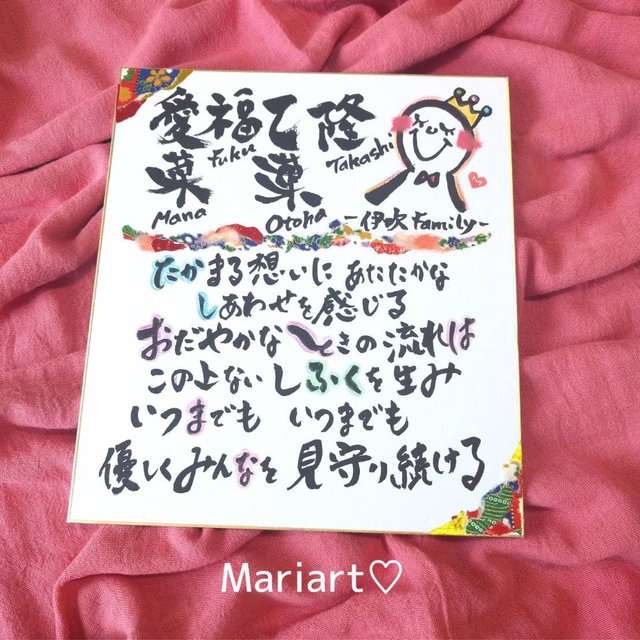 愛福乙隆
菜 Fuku 葉 Takashi
Mana Otoha -伊吹 Family-
たかまる想いに あたたかな
しあわせを感じる
おだやかな ときの流れは
この上ない しふくを生み
いつまでも いつまでも
優しくみんなを 見守り続ける
Mariart♡